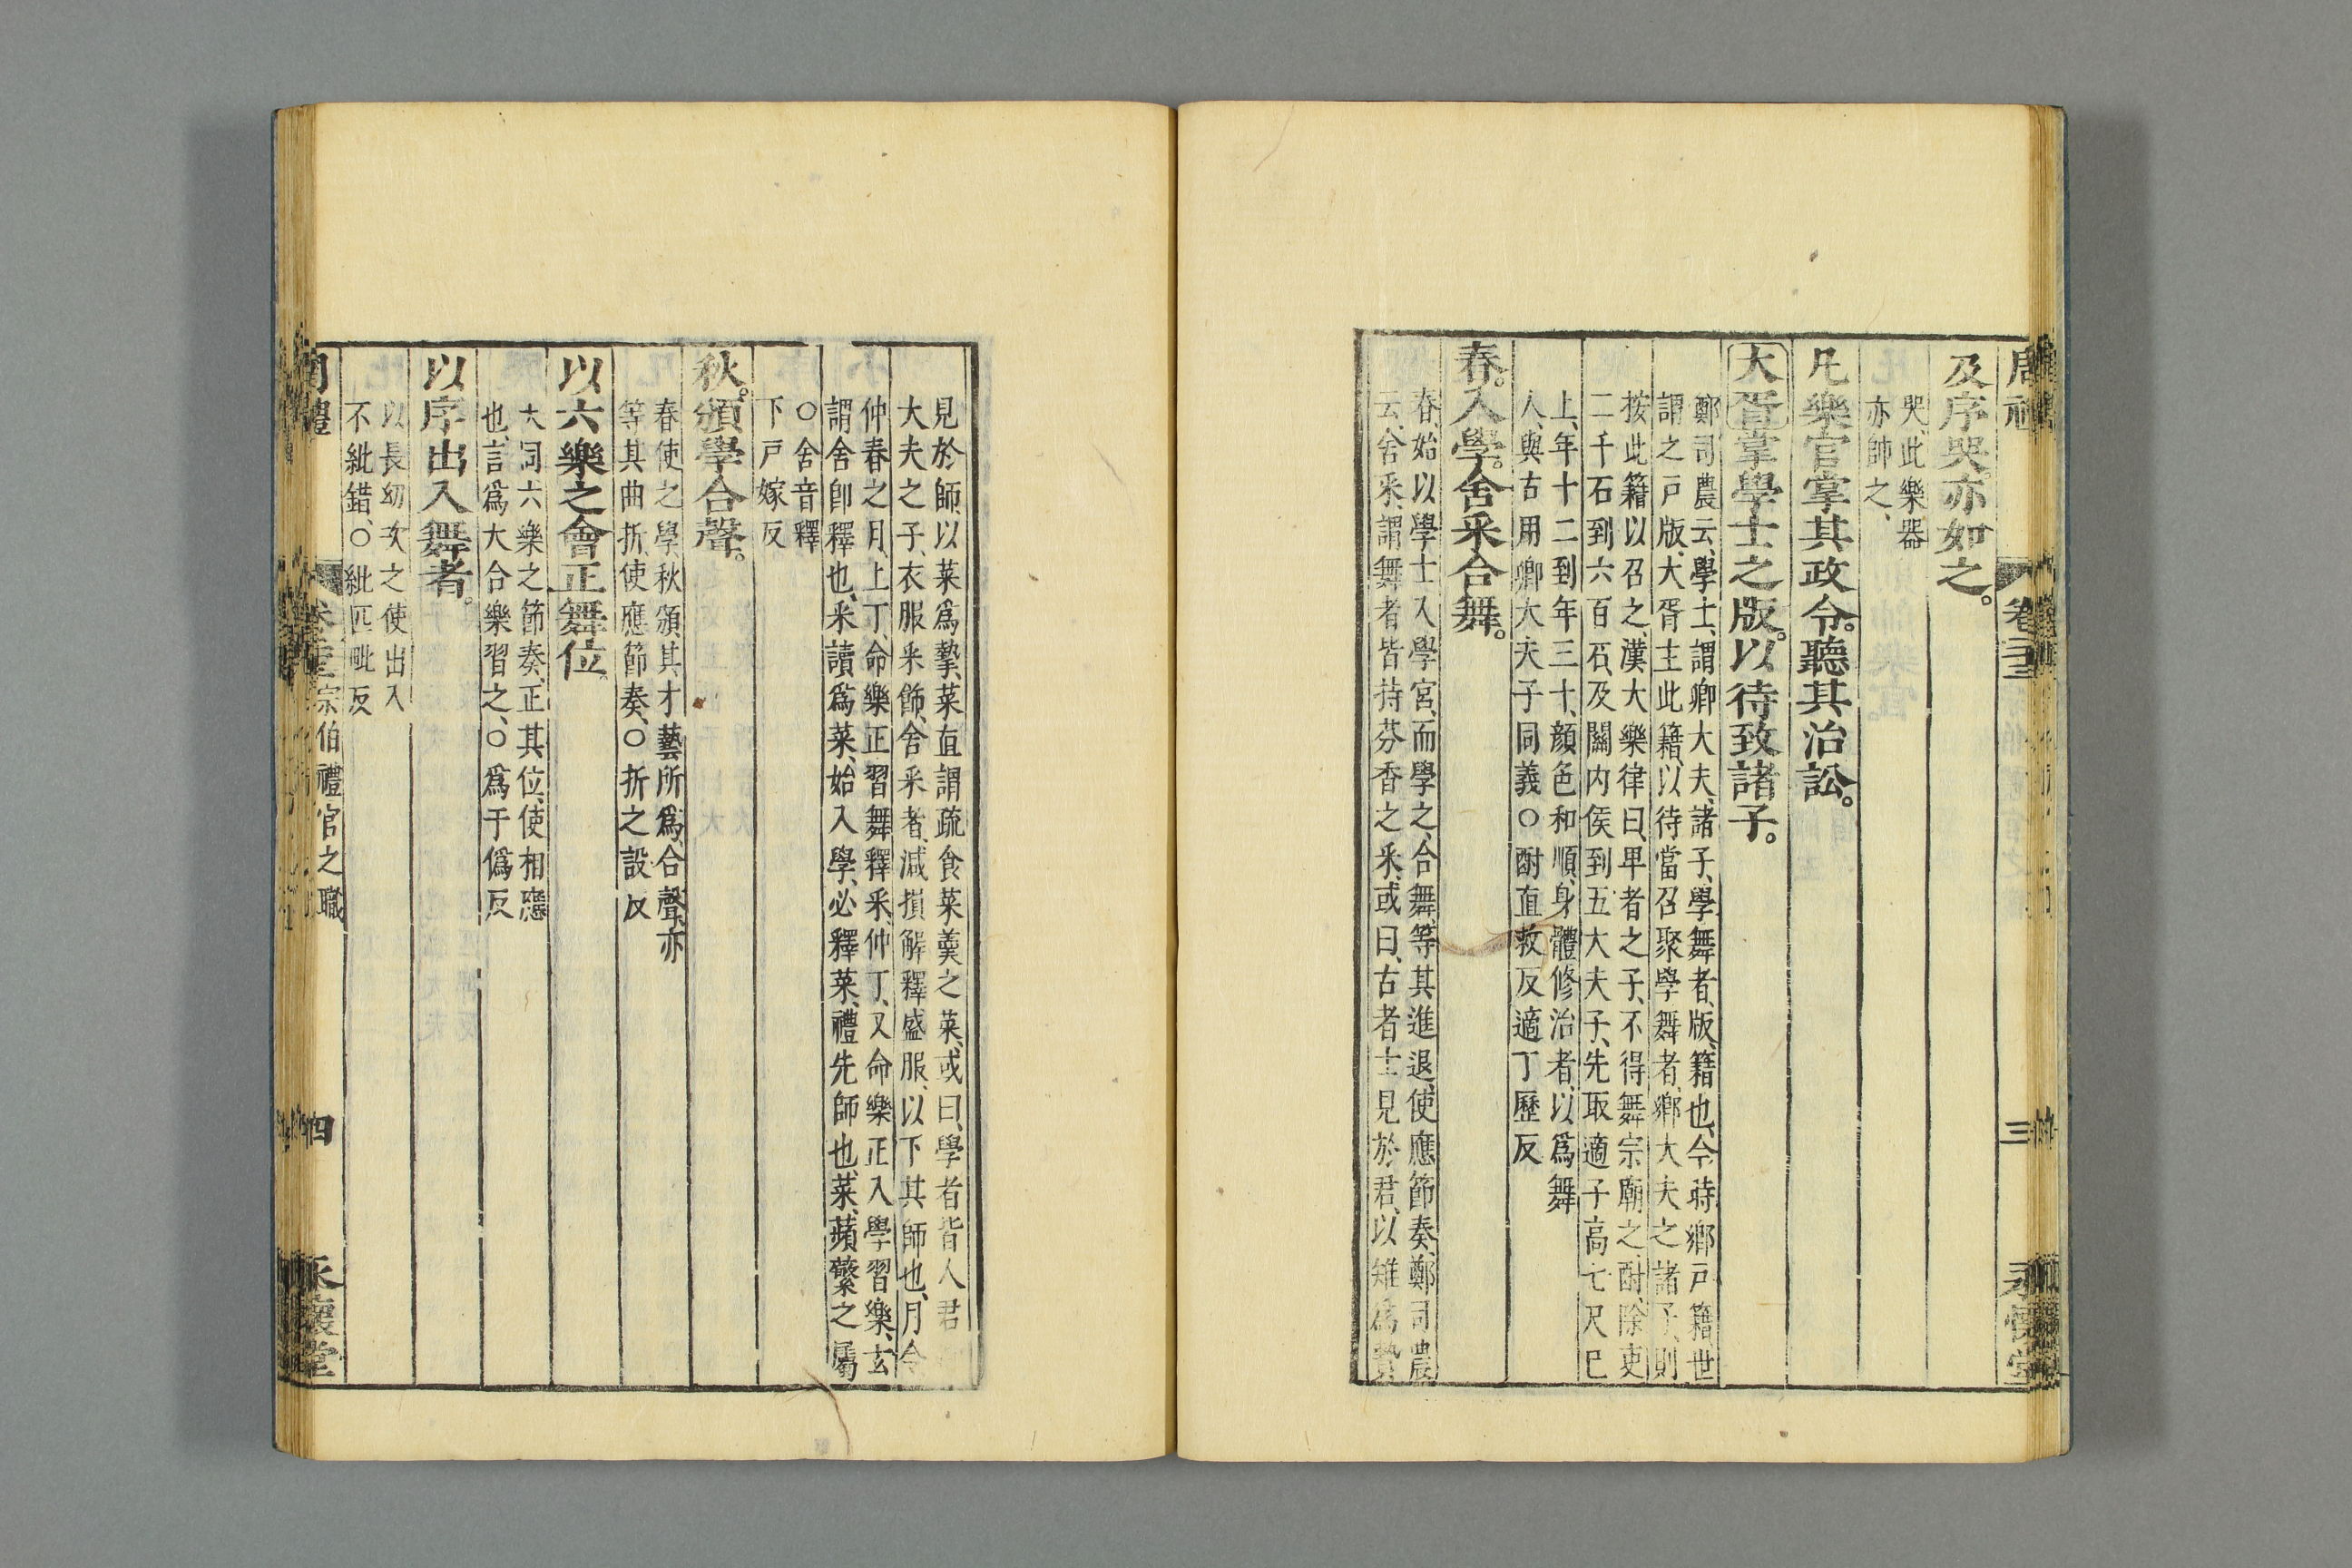 及序哭。亦如之。
哭、此樂器
亦帥之、
凡樂官掌其政令。聽其治訟。
大胥掌學士之版。以待致諸子。
鄭司農云、學士、謂卿大夫、諸子、學舞者、版、籍也、今時鄉戸籍世
謂之戸版、大胥主此籍、以待當召聚學舞者、鄉大夫之諸子、則
按此籍以召之、漢大樂律曰、卑者之子、不得舞宗廟之酎、除吏
二千石到六百石、及關内侯到五大夫子、先取適子高七尺已
上、年十二到年三十、顔色和順、身體修治者、以爲舞
人、與古用卿大夫子同義〇酎直救反適丁歷反
春。入學。舍采合舞。
春、始以學士入學宮、而學之、合舞、等其進退、使應節奏、鄭司農
云、舍采、謂舞者皆持芬香之采、或曰、古者士見於君、以雉爲贄
卷二十三
三
永懷堂
見於師、以菜爲摯、菜直謂疏食菜羹之菜、或曰、學者皆人君
大夫之子、衣服采飾、舍采者、減損解釋盛服、以下其師也、月令
仲春之月、上丁、命樂正習舞釋采、仲丁、又命樂正入學習樂、玄
謂舍卽釋也、采讀爲菜、始入學、必釋菜、禮先師也、菜、蘋蘩之屬
〇舍音釋
下戸嫁反
秋。頒學合聲。
春使之學、秋頒其才藝所爲、合聲、亦
等其曲折、使應節奏、〇折之設反
以六樂之會正舞位
大同六樂之節奏、正其位、使相應
也、言爲大合樂習之、〇爲于僞反
以序出入舞者。
以長幼次之使出入
不紕錯、〇紕匹毗反
周禮
宗伯禮官之職
四
永懷堂